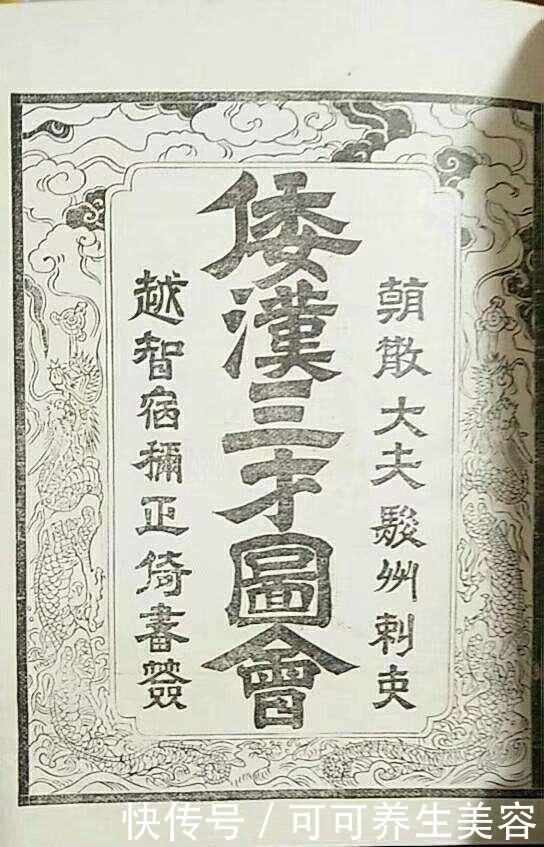 朝散大夫駿州刺史
倭漢三才圖會
越智宿稱正倚書簽
快传号 / 可可养生美容